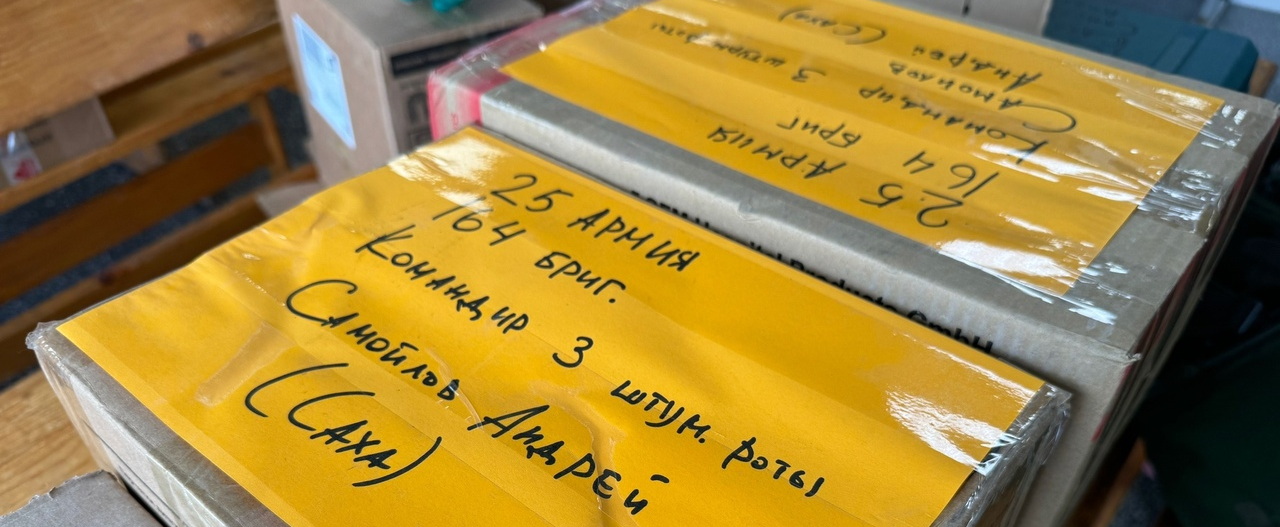 25 АРМИЯ
164 БРИГ.
КОМАНДИР 3 ШТУМ. РОТЫ
САМОЙЛОВ АНДРЕЙ
(САХА)
25 АРМИЯ
164 БРИГ
КОМАНДИР 3 ШТУРМ РОТЫ
САМОЙЛОВ
АНДРЕЙ (САХА)
Products GmbH